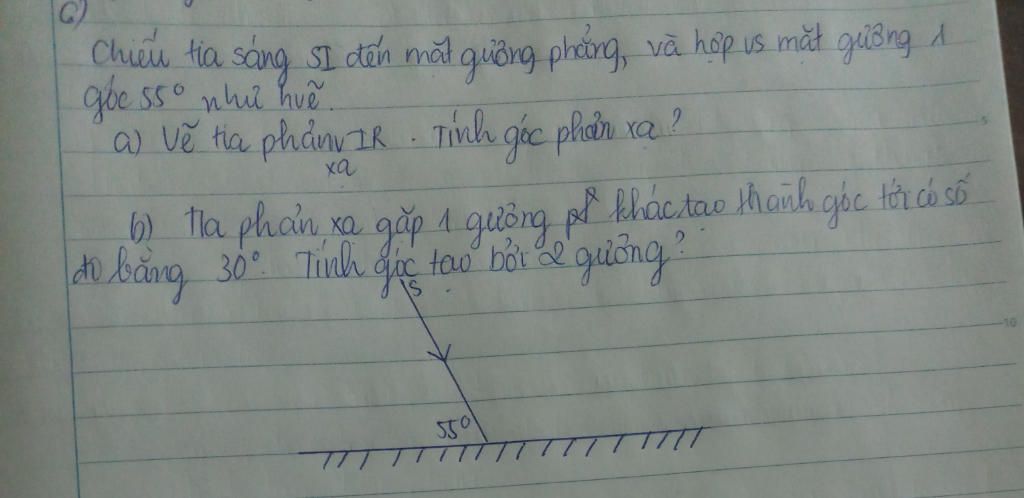 c)
Chiếu tia sáng SI đến mặt gương phẳng, và hợp vs mặt gương 1
góc 55° như hvẽ.
a) Vẽ tia phản xạ IR. Tính góc phản xạ?
b) Tia phản xạ gặp 1 gương pf khác tạo thành góc tới có số
đo bằng 30°. Tính góc tạo bởi 2 gương?
S
55°
10